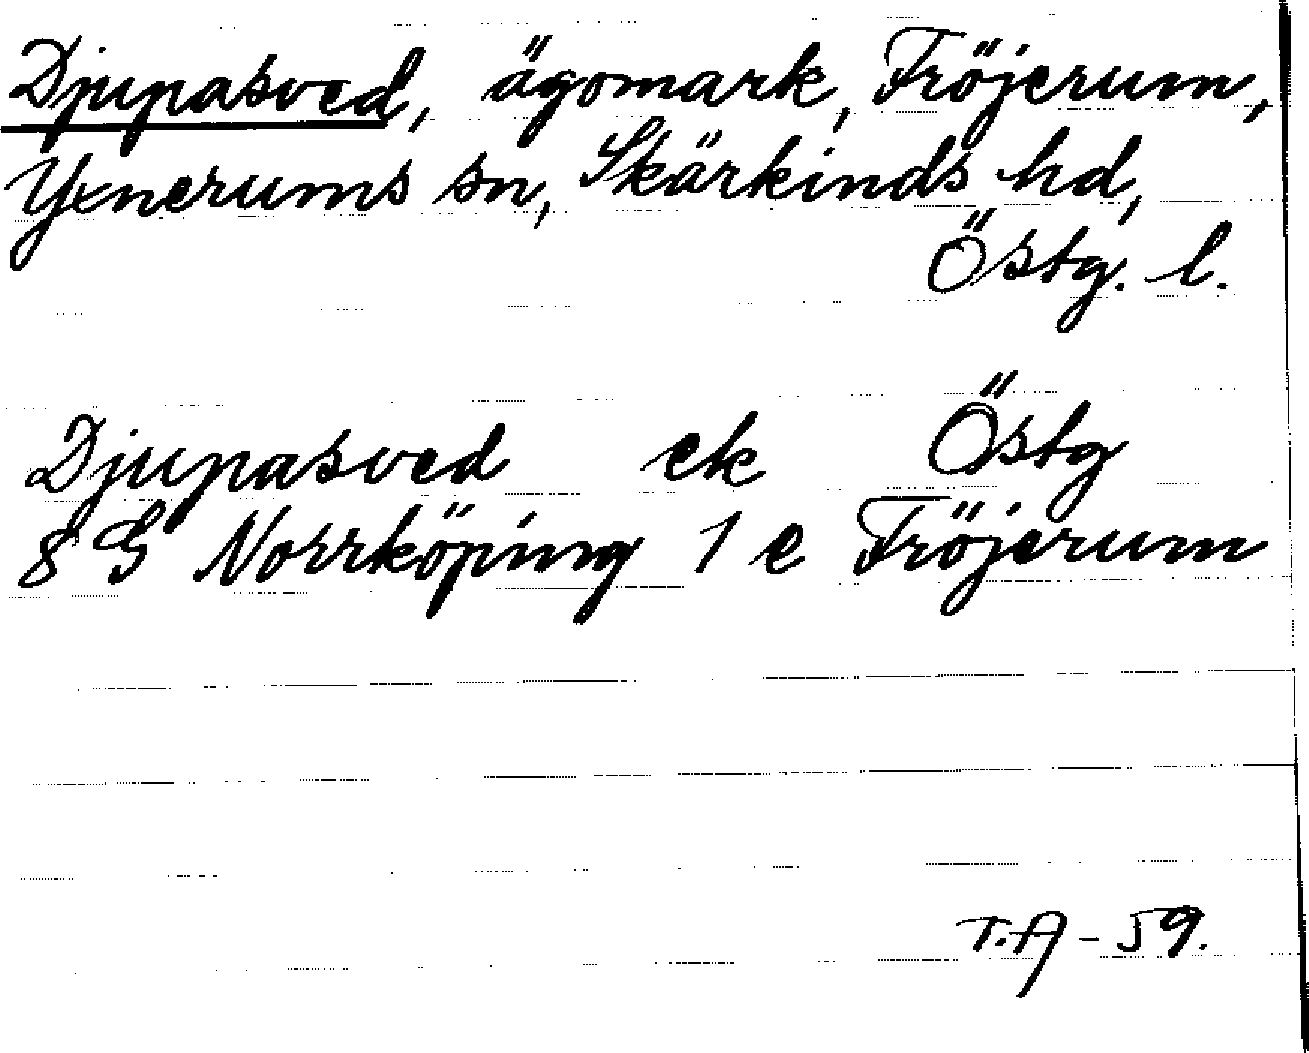 Djupasved, ägomark, Fröjerum,
Yxnerums sn, Skärkinds hd,
Östg. l.
Djupasved ek Östg
8 G Norrköping 1 e Fröjerum
T.A - 59.